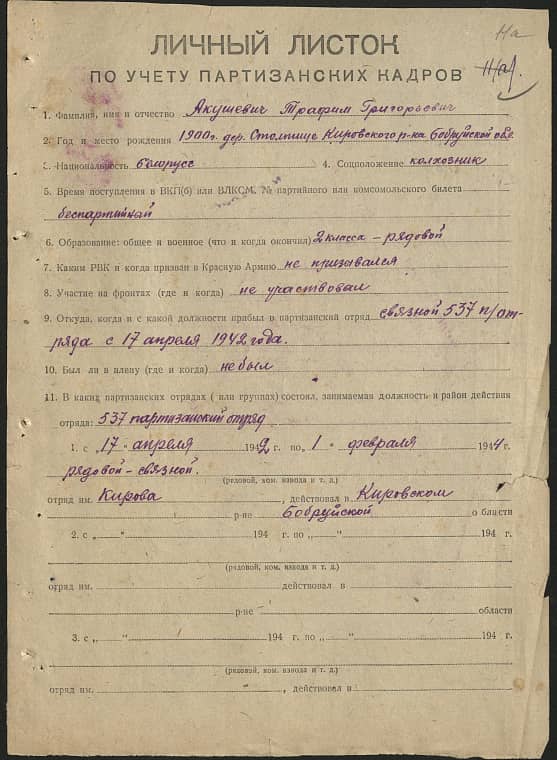 11а
ЛИЧНЫЙ ЛИСТОК
ПО УЧЕТУ ПАРТИЗАНСКИХ КАДРОВ
11/а/.
1. Фамилия, имя и отчество Акушевич Трафим Григорьевич
2. Год и место рождения 1900г. дер. Столпище Кировского р-на Бобруйской обл.
3. Национальность белорусс 4. Соцположение колхозник
5. Время поступления в ВКП(б) или ВЛКСМ, № партийного или комсомольского билета
беспартийный
6. Образование: общее и военное (что и когда окончил) 2 класса – рядовой
7. Каким РВК и когда призван в Красную Армию не призывался
8. Участие на фронтах (где и когда) не участвовал
9. Откуда, когда и с какой должности прибыл в партизанский отряд связной 537 п/от-
ряда с 17 апреля 1942 года.
10. Был ли в плену (где и когда) не был
11. В каких партизанских отрядах ( или группах) состоял, занимаемая должность и район действия
отряда: 537 партизанский отряд
1. с „17“ апреля 1942 г. по „1“ февраля 1944 г.
рядовой – связной.
(рядовой, ком. взвода и т. д.)
отряд им. Кирова, действовал в Кировском
р-не Бобруйской области
2. с „ “ 194 г. по „ “ 194 г.
(рядовой, ком. взвода и т. д.)
отряд им. действовал в
р-не области
3. с „ “ 194 г. по „ “ 194 г.
(рядовой, ком. взвода и т. д.)
отряд им. , действовал в